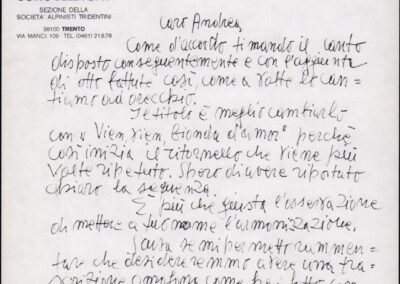 SEZIONE DELLA
SOCIETA' ALPINISTI TRIDENTINI
38100 TRENTO
VIA MANCI, 109 - TEL. (0461) 21.5.78
Caro Andrea
Come d'accordo ti mando il canto
disposto conseguentemente e con l'aggiunta
di otto battute così, come a volte lo can=
tiamo ad orecchio.
Il titolo è meglio cambiarlo
con "Vien, vien, bionda d'amor" perchè
così inizia il ritornello che viene più
volte ripetuto. Spero di avere riportato
chiaro la sequenza.
È più che giusta l'asserzione
di mettere a tuo nome l'armonizzazione.
Scusa se mi permetto rammen=
tar che desidereremmo avere una tra=